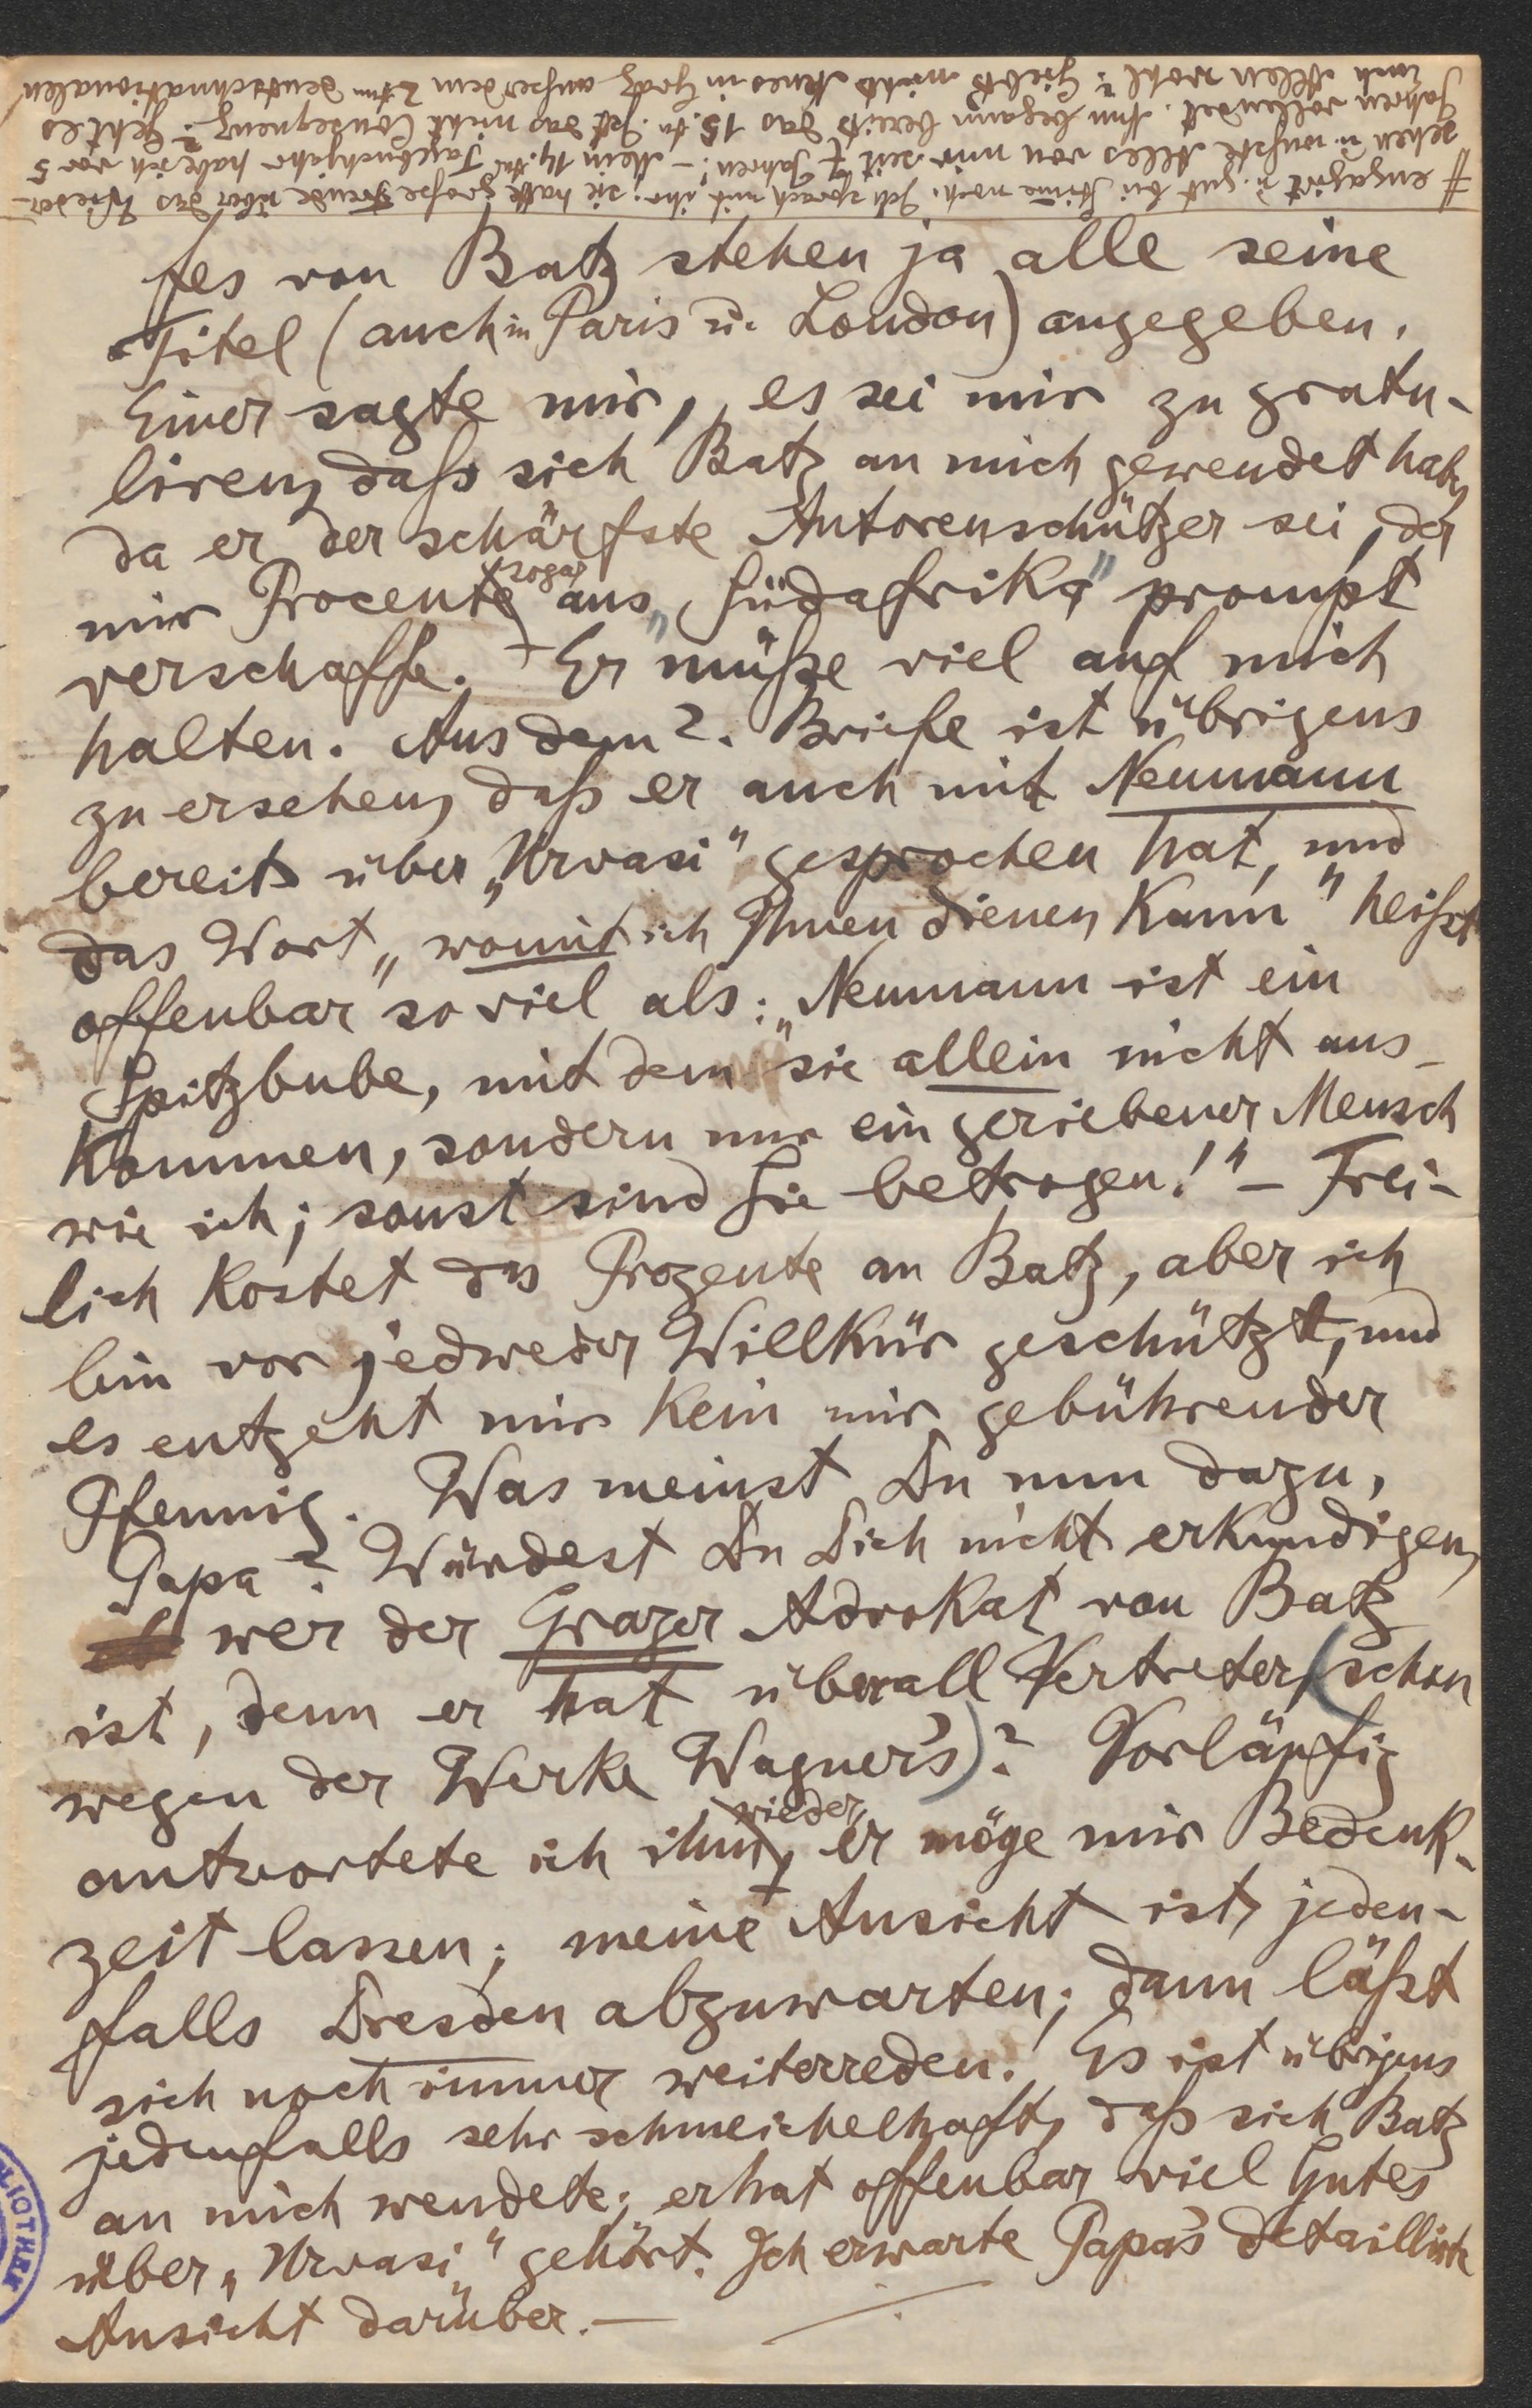 # engagirt u. gut bei Stimme noch. Ich sprach mit ihr; sie hatte große Freude über das Wieder-
sehen u. wußte Alles von mir seit 7 Jahren! – Mein 14. tes Tagebuchjahr habe ich vor 5
Jahren vollendet. Nun begann bereits das 15. te. Ist das nicht Consequenz? Geht es
Euch Allen wohl? Giebts nichts Neues in Graz außer dem deutschnationalen
fes von Batz stehen ja alle seine
Titel (auch in Paris u. London) angegeben.
Einer sagte mir, es sei mir zu gratu-
liren, daß sich Batz an mich gewendet habe,
da er der schärfste Autorenschützer sei, der
mir Procente sogar aus „Südafrika" prompt
verschaffe. Er müße viel auf mich
halten. Aus dem 2. Briefe ist übrigens
zu ersehen, daß er auch mit Neumann
bereits über „Urvasi" gesprochen hat, und
das Wort „womit ich Ihnen dienen kann" heißt
offenbar so viel als: „Neumann ist ein
Spitzbube, mit dem sie allein nicht aus-
kommen, sondern nur ein geriebener Mensch
wie ich; sonst sind Sie betrogen!" – Frei-
lich kostet das Prozente an Batz, aber ich
bin vor jedweder Willkür geschützt, und
es entgeht mir kein mir gebührender
Pfennig. Was meinst Du nun dazu,
Papa? Würdest Du Dich nicht erkundigen,
wer der Grazer Advokat von Batz
ist, denn er hat überall Vertreter (schon
wegen der Werke Wagner's)? Vorläufig
antwortete ich ihm wieder, er möge mir Bedenk-
zeit lassen; meine Ansicht ist, jeden-
falls Dresden abzuwarten; dann läßt
sich noch immer weiterreden. Es ist übrigens
jedenfalls sehr schmeichelhaft, daß sich Batz
an mich wendete; er hat offenbar viel Gutes
über „Urvasi" gehört. Ich erwarte Papa's detaillirte
Ansicht darüber. —
LIOTHEK